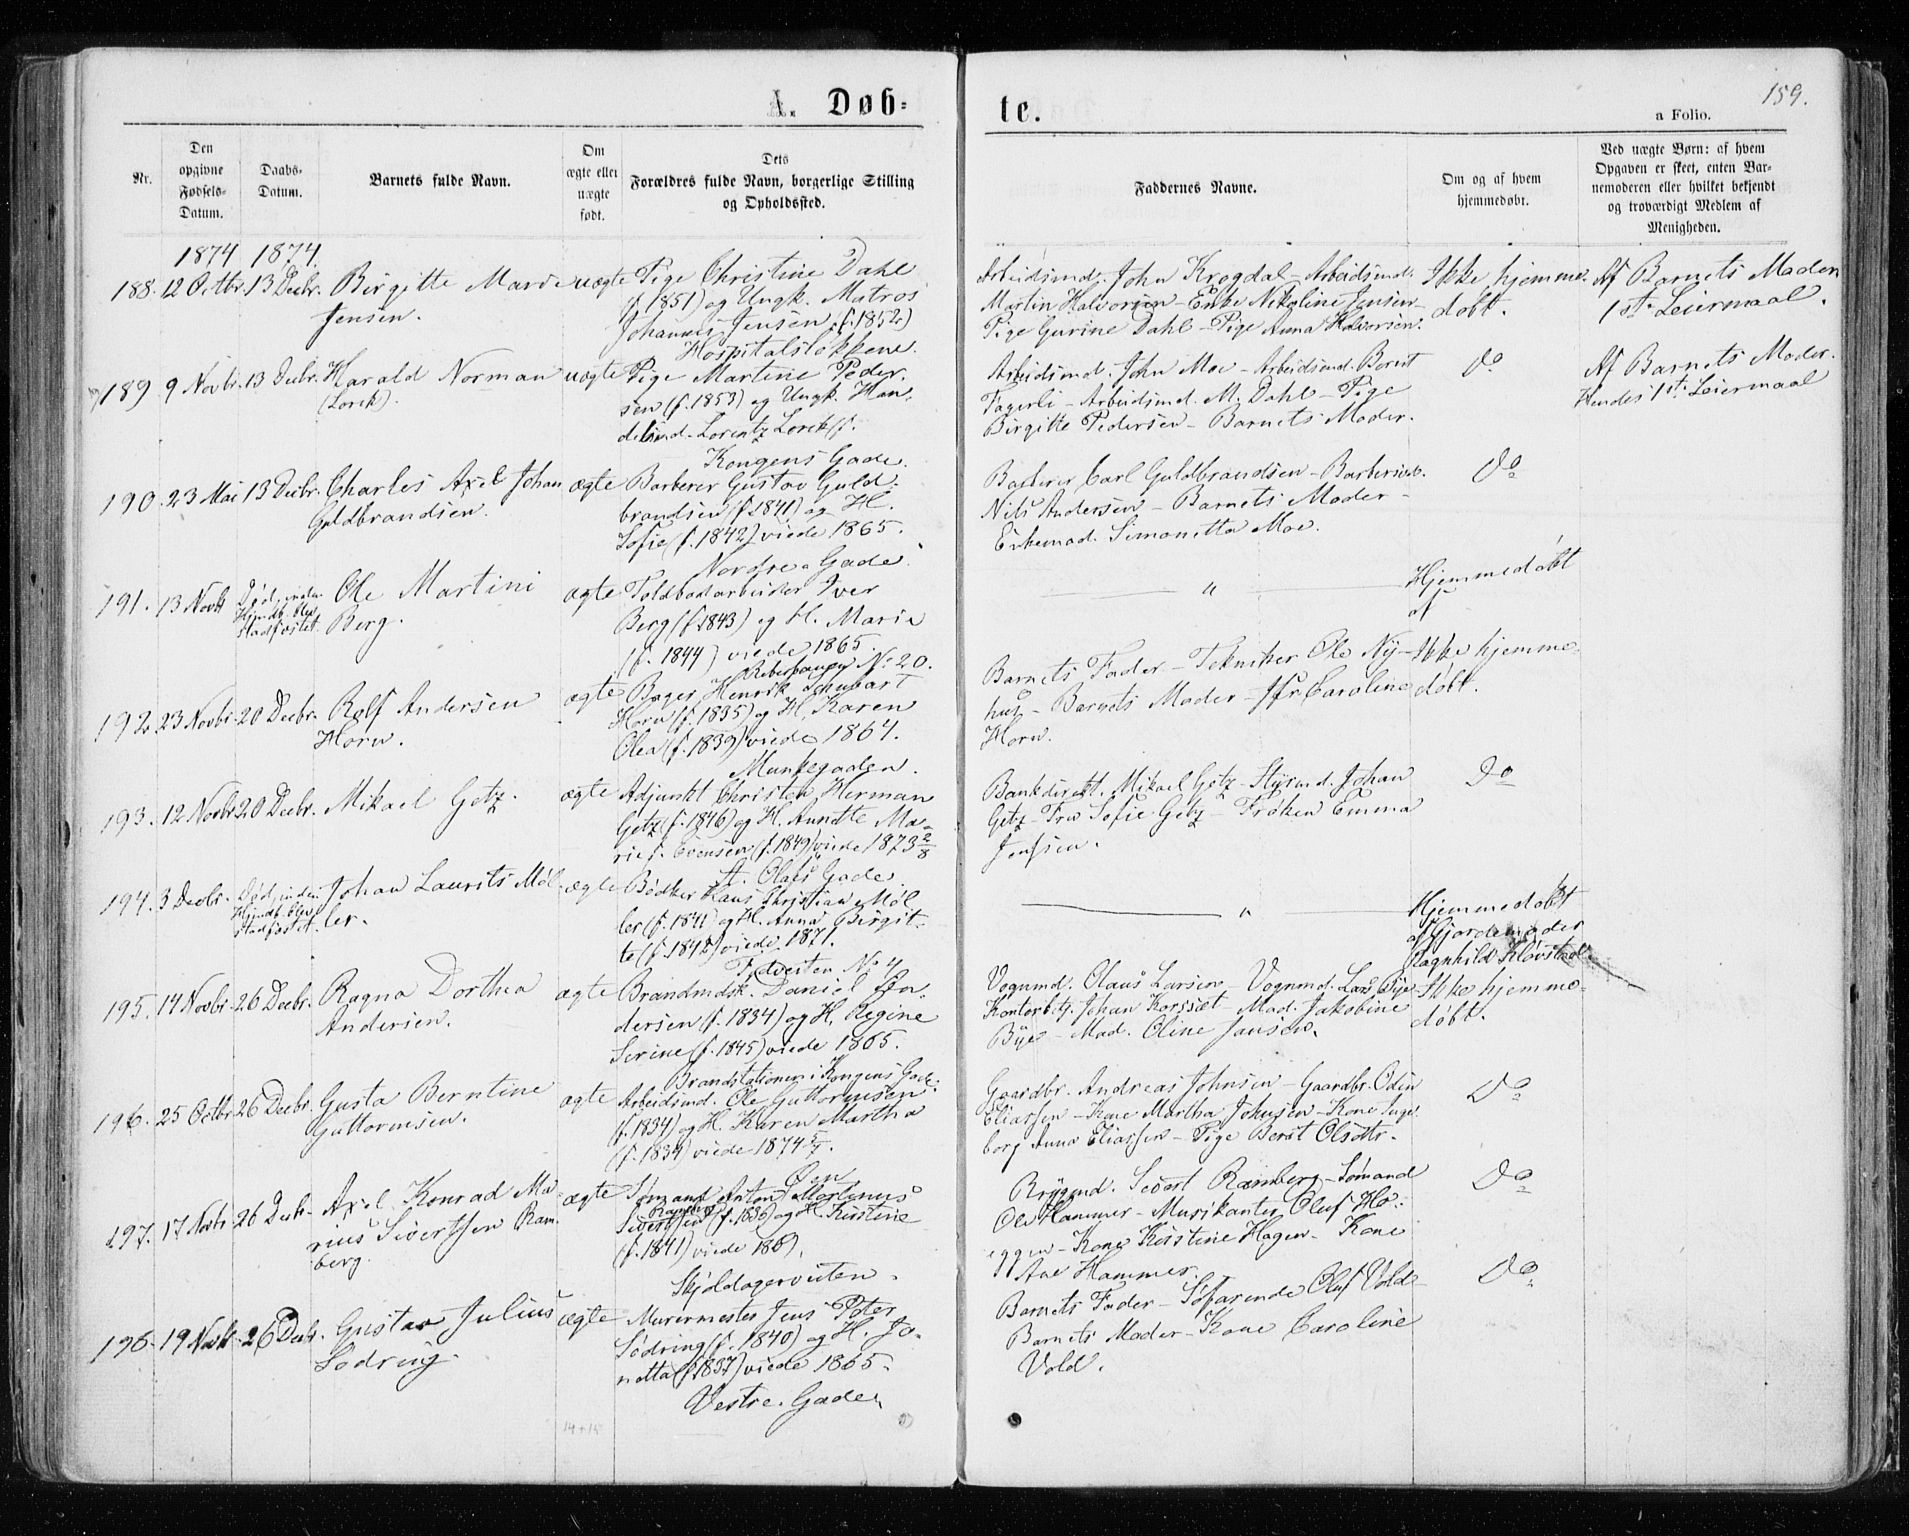 A. Døb-
te.
159.
a Folio.
Nr.
Den
opgivne
Fødsels-
Datum.
Daabs-
Datum.
Barnets fulde Navn.
Om
ægte eller
uægte
født.
Dets
Forældres fulde Navn, borgerlige Stilling
og Opholdssted.
Faddernes Navne.
Om og af hvem
hjemmedøbt.
Ved uægte Børn: af hvem
Opgaven er skeet, enten Bar-
nemoderen eller hvilket bekjendt
og troværdigt Medlem af
Menigheden.
1874 1874.
188. 12 Octbr. 13 Decbr. Birgitte Marie uægte Pige Christine Dahl
Jensen.
(f. 1851) og Ungk. Matros
Johannes Jensen (f. 1852)
Hospitalsløkkene.
Arbeidsmd. John Krogdal - Arbeidsmd.
Martin Halvorsen - Enke Nikoline Jensen -
Pige Gurine Dahl - Pige Anna Halvorsen.
Ikke hjemme-
døbt.
Af Barnets Moder
1ste Leiermaal.
189 9 Novbr. 13 Decbr. Harald Norman uægte Pige Martine Peder-
(Lorck).
sen (f. 1853) og Ungk. Han-
delsmd. Lorentz Lorck (f.
Kongens Gade.
Arbeidsmd. John Moe - Arbeidsmd. Berent
Fagerli - Arbeidsmd. M. Dahl - Pige
Birgitte Pedersen - Barnets Moder.
Do
Af Barnets Moder.
Hendes 1ste Leiermaal
190. 23 Mai 13 Decbr. Charles Axel Johan ægte Barberer Gustav Guld-
Guldbrandsen.
brandsen (f. 1841) og H.
Sofie (f. 1842) viede 1865.
Nordre Gade.
Barberer Carl Guldbrandsen - Barbersv.
Nils Andersen - Barnets Moder -
Enkemad. Simonetta Moe.
Do
191. 13 Novbr. Død, inden
Hjmdb. blev
stadfæstet.
Ole Martini ægte Toldbodarbeider Iver
Berg.
Berg (f. 1843) og H. Marie
(f. 1844) viede 1865.
No 20.
"
Hjemmedøbt
af
192. 23 Novbr. 20 Decbr. Rolf Andersen ægte Bager Henrik Schubart
Horn.
Horn (f. 1835) og H. Karen
Olea (f. 1839) viede 1864.
Munkegaden.
Barnets Fader - Tekniker Ole Ny-
hus - Barnets Moder - Jfr. Caroline
Horn.
Ikke hjemme-
døbt.
193. 12 Novbr. 20 Decbr. Mikael Getz. ægte Adjunkt Christen Herman
Getz (f. 1846) og H. Anndte Ma-
rie f. Evensen (f. 1849) viede 1873 2/8
St. Olafs Gade.
Bankdirekt. Mikael Getz - Styrmd. Johan
Getz - Fru Sofie Getz - Frøken Emma
Jenssen.
Do
194. 3 Decbr. Død, inden
Hjmdb. blev
stadfæstet.
Johan Laurits Møl- ægte Bødker Hans Christian Møl-
ler.
ler (f. 1841) og H. Anna Birgit-
te (f. 1842) viede 1871.
No 4
"
Hjemmedøbt
af Gjordemoder
Ragnhild Kløvstad.
195. 14 Novbr. 26 Decbr. Ragna Dorthea ægte Brandmdsk. Daniel An-
Andersen.
dersen (f. 1834) og H. Regine
Serine (f. 1845) viede 1865.
Brandstationen i Kongens Gade.
Vognmd. Olaus Larsen - Vognmd. Lars Bye -
Kontorbetj. Johan Korssæt - Mad. Jakobine
Bye - Mad. Oline Jansen.
Ikke hjemme-
døbt.
196. 25 Octbr. 26 Decbr. Gusta Berntine ægte Arbeidsmd. Ole Guttormsen
Guttormsen.
(f. 1834) og H. Karen Martha
(f. 1834) viede 1874 5/7.
Øen
Gaardbr. Andreas Johnsen - Gaardbr. Odin
Eliassen - Kone Martha Johnsen - Kone Inge-
borg Anna Eliassen - Pige Berit Olsdtr.
Do
197. 17 Novbr. 26 Decbr. Axel Konrad Ma- ægte Sømand Anton Martinus
rius Sivertsen Ram-
berg.
Ramberg
Sivertsen (f. 1836) og H. Kirstine
(f. 1841) viede 1869.
Skjoldagerveiten.
Brygmd. Sivert Ramberg - Sømand
Ole Hammer - Musikanter Oluf Ho-
eggen - Kone Kirstine Hagen - Kone
Ane Hammer.
Do
198. 19 Novbr. 26 Decbr. Gustav Julius ægte Murermester Jens Peter
Sødring.
Sødring (f. 1840) og H. Jo-
netta (f. 1837) viede 1865.
Vestre Gade.
Barnets Fader - Søfarende Oluf Vold -
Barnets Moder - Kone Caroline
Vold.
Do
14 + 15